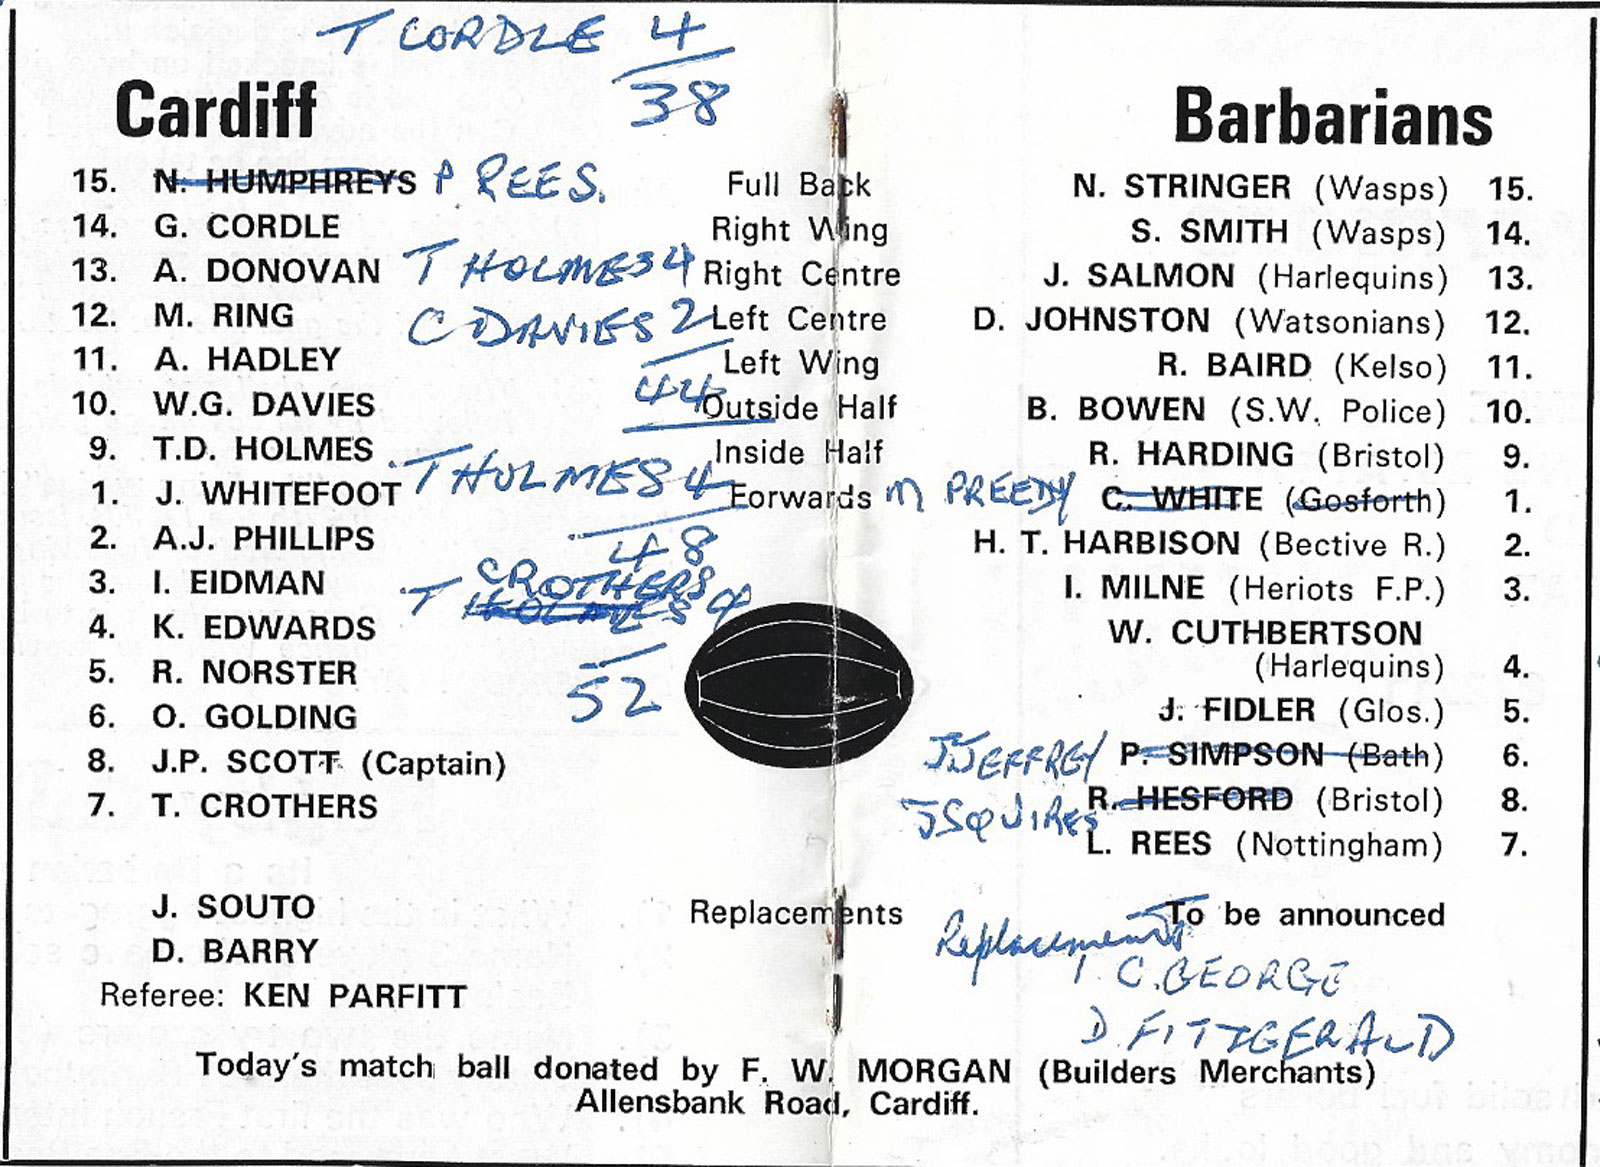 T CORDLE 4
38
Cardiff Barbarians
15. N. HUMPHREYS P REES. Full Back N. STRINGER (Wasps) 15.
14. G. CORDLE Right Wing S. SMITH (Wasps) 14.
13. A. DONOVAN T HOLMES 4 Right Centre J. SALMON (Harlequins) 13.
12. M. RING C DAVIES 2 Left Centre D. JOHNSTON (Watsonians) 12.
11. A. HADLEY Left Wing R. BAIRD (Kelso) 11.
44
10. W.G. DAVIES Outside Half B. BOWEN (S.W. Police) 10.
9. T.D. HOLMES Inside Half R. HARDING (Bristol) 9.
1. J. WHITEFOOT T HOLMES 4 Forwards M PREEDY C. WHITE (Gosforth) 1.
2. A.J. PHILLIPS 48 H. T. HARBISON (Bective R.) 2.
3. I. EIDMAN T CROTHERS HOLMES 4 I. MILNE (Heriots F.P.) 3.
4. K. EDWARDS W. CUTHBERTSON
(Harlequins) 4.
5. R. NORSTER 52
6. O. GOLDING J. FIDLER (Glos.) 5.
8. J.P. SCOTT (Captain) J JEFFREY P. SIMPSON (Bath) 6.
7. T. CROTHERS J SQUIRES R. HESFORD (Bristol) 8.
L. REES (Nottingham) 7.
J. SOUTO Replacements To be announced
D. BARRY Replacements
1 C. GEORGE
Referee: KEN PARFITT
D FITTGERALD
Today's match ball donated by F. W. MORGAN (Builders Merchants)
Allensbank Road, Cardiff.